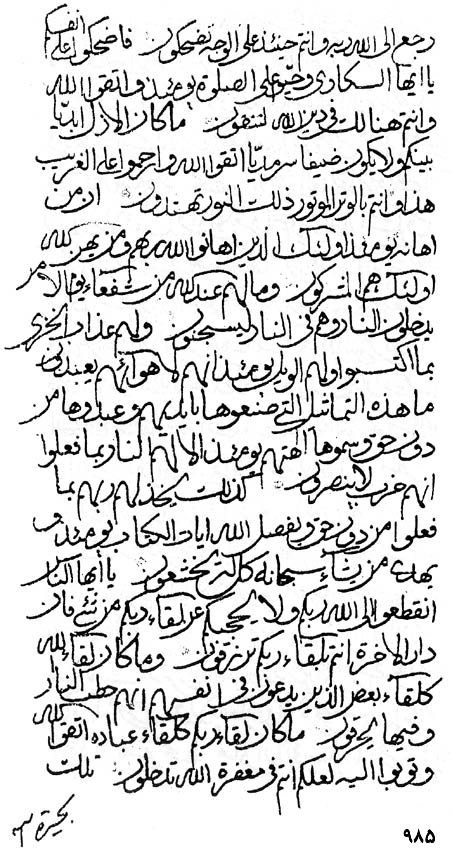 رجع الى الله ربه وانتم حينئذ على الوجه تضحكون فاضحكوا على انفسكم
يا ايها السكارى وحيوا على الصلوة يومئذ واتقوا الله
وانتم هنالك فى دين الله لتتقون ما كان الاذل ابديا
بينكم ولا يكون ضيفا سرمديا اتقوا الله وارحموا على الغريب
هذا وانتم بالوتر الموتور ذلك النور تهتدون ان من
اهانه يومئذ اولئك الذين اهانوا الله ربهم ومن يهن الله
اولئك هم المشركون وما لهم عند الله من شفعاء يوم الامر
يدخلون النار وهم فى النار ليسجنون ولهم عذاب الخزى
بما اكتسبوا ولهم الويل يومئذ انهم لاهوائهم يعبدون
ما هذه التماثيل التى صنعوها بايديهم وعبدوها من
دون حق وسموها الهتهم يومئذ الا لهم النار بما فعلوا
انهم حزب لا ينصرون كذلك يخذلهم ربهم بما
فعلوا من دون حق ويفصل الله ايات الكتاب يومئذ و
يهدى من يشاء سبحانه كل له يخشعون يا ايها الناس
انقطعوا الى الله ربكم ولا يحجبكم عن لقاء ربكم من شئ فان
دار الاخرة انتم بلقاء ربكم ترزقون وما كان لقاء الله
كلقاء بعض الذين يدعون فى انفسهم انهم حطب النار
وفيها يحرقون ما كان لقاء ربكم كلقاء عباده اتقوا الله
وتوبوا اليه لعلكم انتم فى مغفرة الله تدخلون تلك
۹۸۵